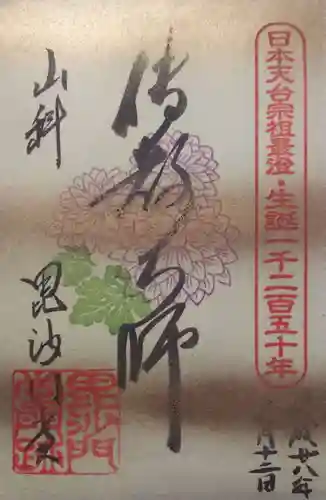 日本天台宗祖最澄・生誕一千二百五十年
傳教大師
山科
毘沙門堂
成廿八年
月十二日